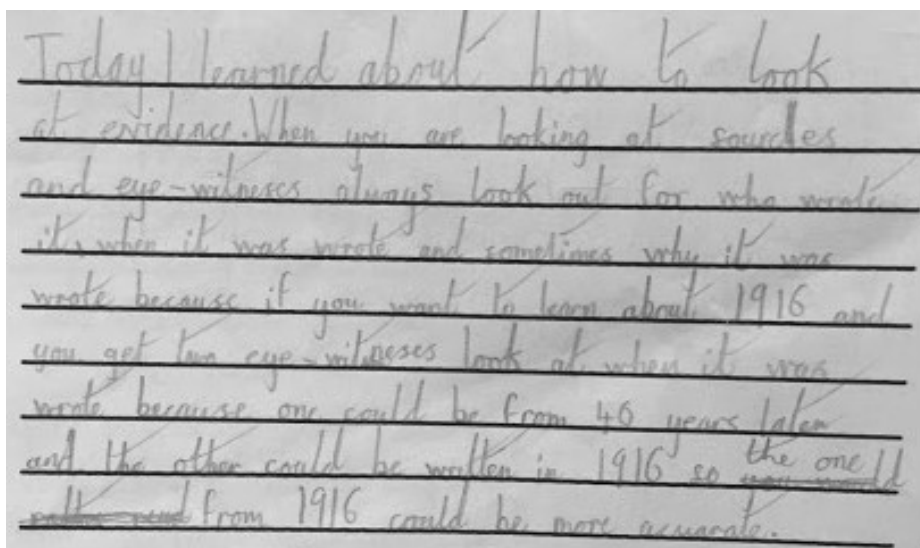 Today I learned about how to look
at evidence. When you are looking at sources
and eye-witneses always look out for who wrote
it, when it was wrote and sometimes why it was
wrote because if you want to learn about 1916 and
you get two eye-witneses look at when it was
wrote because one could be from 40 years later
and the other could be written in 1916 so the one
from 1916 could be more acurate.